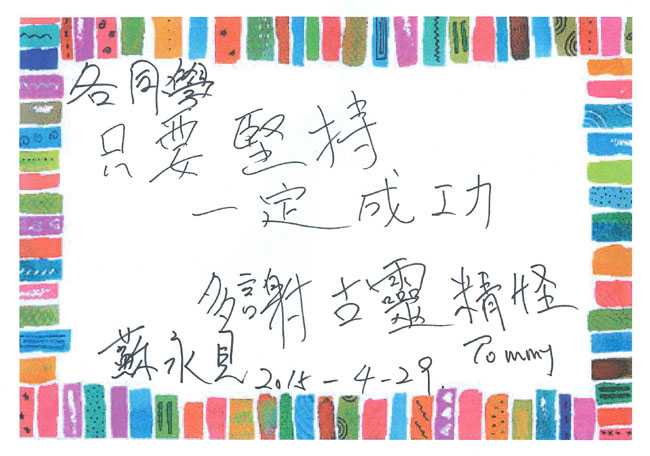 各同學
只要堅持
一定成功
多謝古靈精怪
Tommy
蘇永見 2015-4-29.